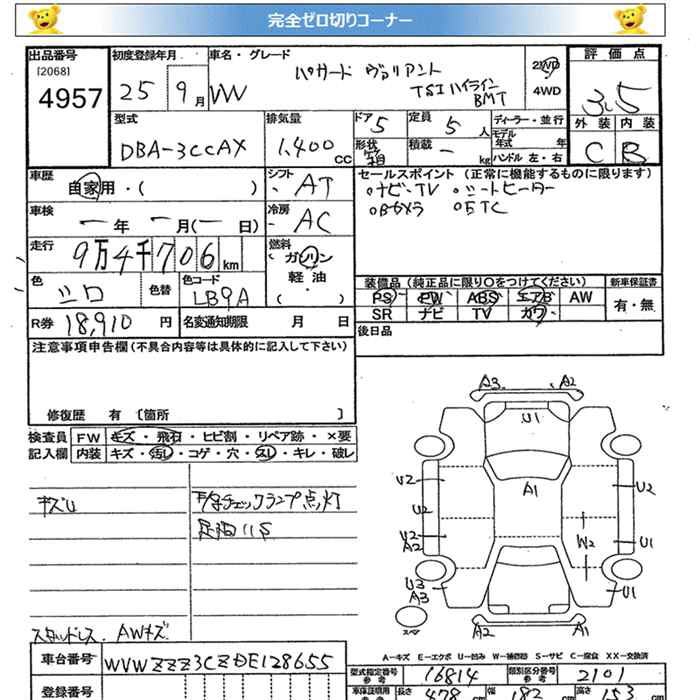 完全ゼロ切りコーナー
出品番号 初度登録年月 車名・グレード 評価点
[2068]
4957 25 9月 VW パサード ヴァリアント 2WD 3.5
TSIハイライン 4WD
BMT
型式 排気量 ドア 5 定員 5人 ディーラー・並行 外装 内装
DBA-3CCAX 1,400cc 形状 箱 積載 - kg モデル年式 年 C B
ハンドル 左・右
車歴 自家用・( ) シフト AT セールスポイント (正常に機能するものに限ります)
ナビ・TV シートヒーター
Bカメラ ETC
車検 一年 一月(一日) 冷房 AC
走行 9万4千706km 燃料 ガソリン
軽油
( )
色 シロ 色替 色コード LB9A 装備品 (純正品に限り○をつけてください) 新車保証書
PS PW ABS エアB AW 有・無
SR ナビ TV カワ
R券 18,910円 名変通知期限 月 日 後日品
注意事項申告欄(不具合内容等は具体的に記入して下さい)
修復歴 有 [箇所 ]
検査員 FW キズ・飛石・ヒビ割・リペア跡・×要
記入欄 内装 キズ・汚し・コゲ・穴・スレ・キレ・破レ
キズU チェックランプ点灯
スタッドレス. AWキズ
A3 A2
U1
A1
U2 U2
U2
U2 W2 U1
A2
U3 U1
A3
スペア A2 A1
A-キズ E-エクボ U-凹み W-補修跡 S-サビ C-腐食 XX-交換済
車台番号 WVWZZZ3CZDE128655
型式指定番号 参考 16814 類別区分番号 参考 2101
登録番号 車検証寸法 参考 長さ 478 cm 幅 182 cm 高さ 153 cm